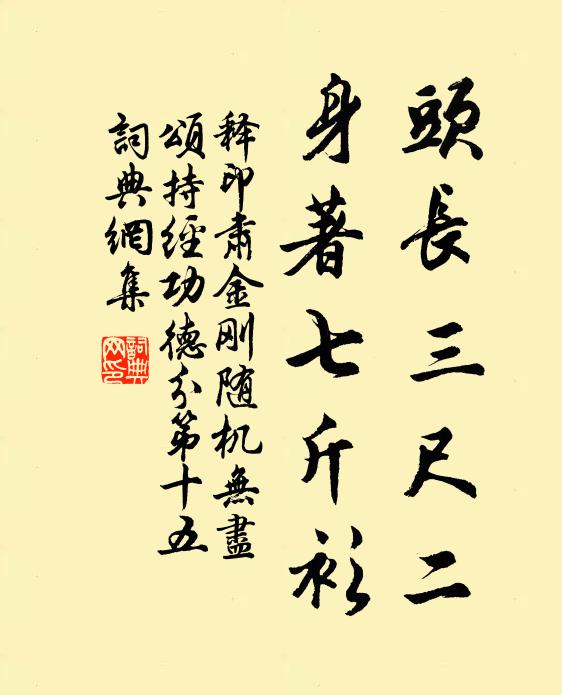 頭長三尺二
身著七斤衫
釋印肅金刚随机無盡
頌持經功德分第十五
詞典網集
詞典网印